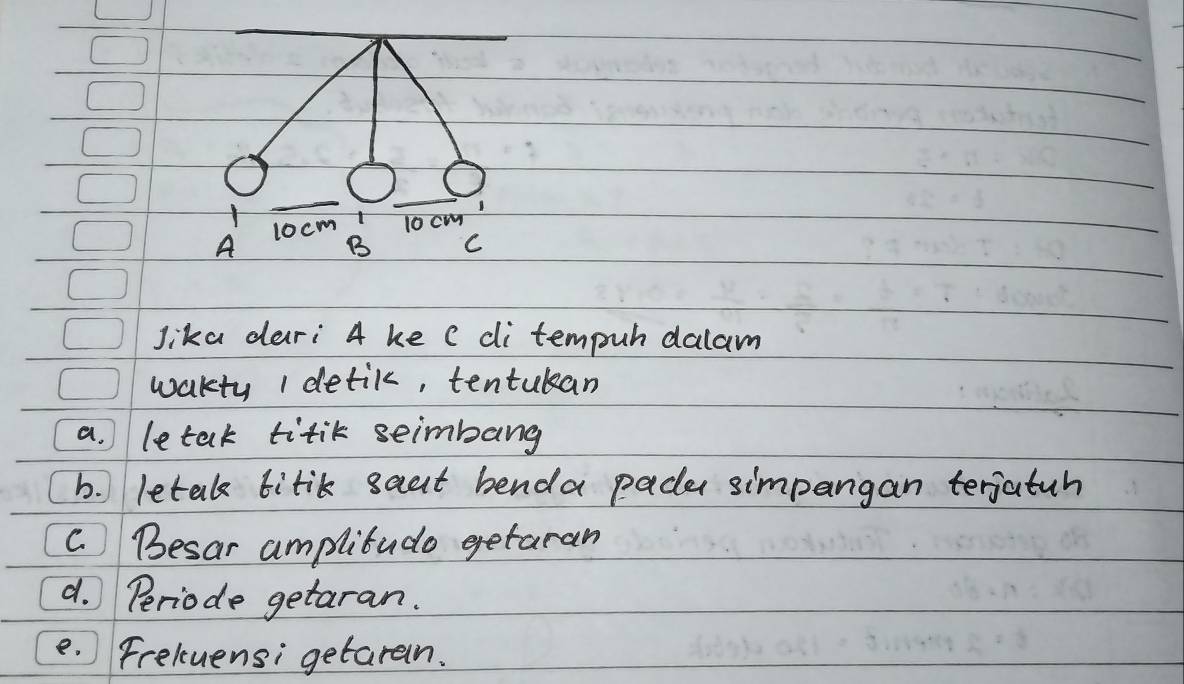 10 cm 10 cm
A B C
Jika dari A ke C di tempuh dalam
waktu 1 detik, tentukan
a. letak titik seimbang
b. letak titik saat benda pada simpangan terjatuh
c. Besar amplitudo getaran
d. Periode getaran.
e. Frekuensi getaran.